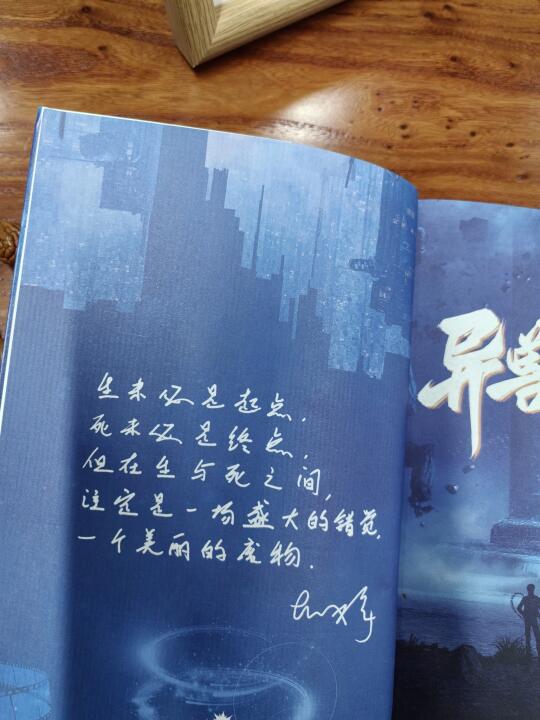 生未必是起点,
死未必是终点,
但在生与死之间,
注定是一场盛大的错觉,
一个美丽的废物.
异兽